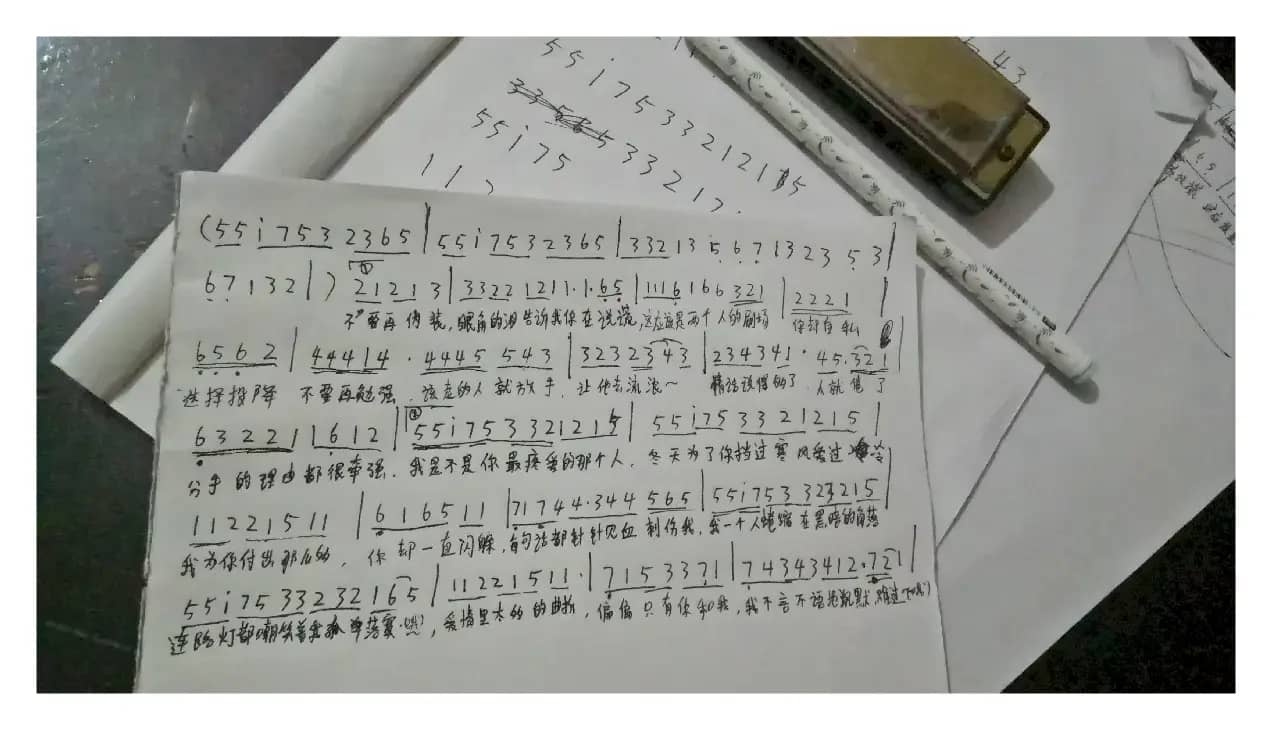 43
55i75332121 5
55i75 33212
112
(55i7532365|55i7532365|332135671323 53|
67132 1|) ① 21213|33221211·1·65|1116166321|2221|
不要再伪装,眼角的泪告诉我你在说谎,这应该是两个人的剧场 你却自私
6562|44414·4445 543|3232343|234341·45·321|
选择投降 不要再勉强,该走的人就放手,让他去流浪~ 情话说得够了,人就傻了
632211612|② 55i75332121 5|55i753321215|
分手的理由都很牵强,我是不是你最疼爱的那个人,冬天为了你挡过寒风受过冷
11221511|6165 11|71744·344 565|55i7533 323215|
我为你付出那么多,你却一直闪躲,每句话都针针见血刺伤我,我一个人蜷缩在黑暗的角落
55i7533232165|11221511·|7153371|74343412·721|
连路灯都嘲笑着我孤单落寞,爱情里 的曲折,偏偏只有你和我,我不言不语 沉默难过